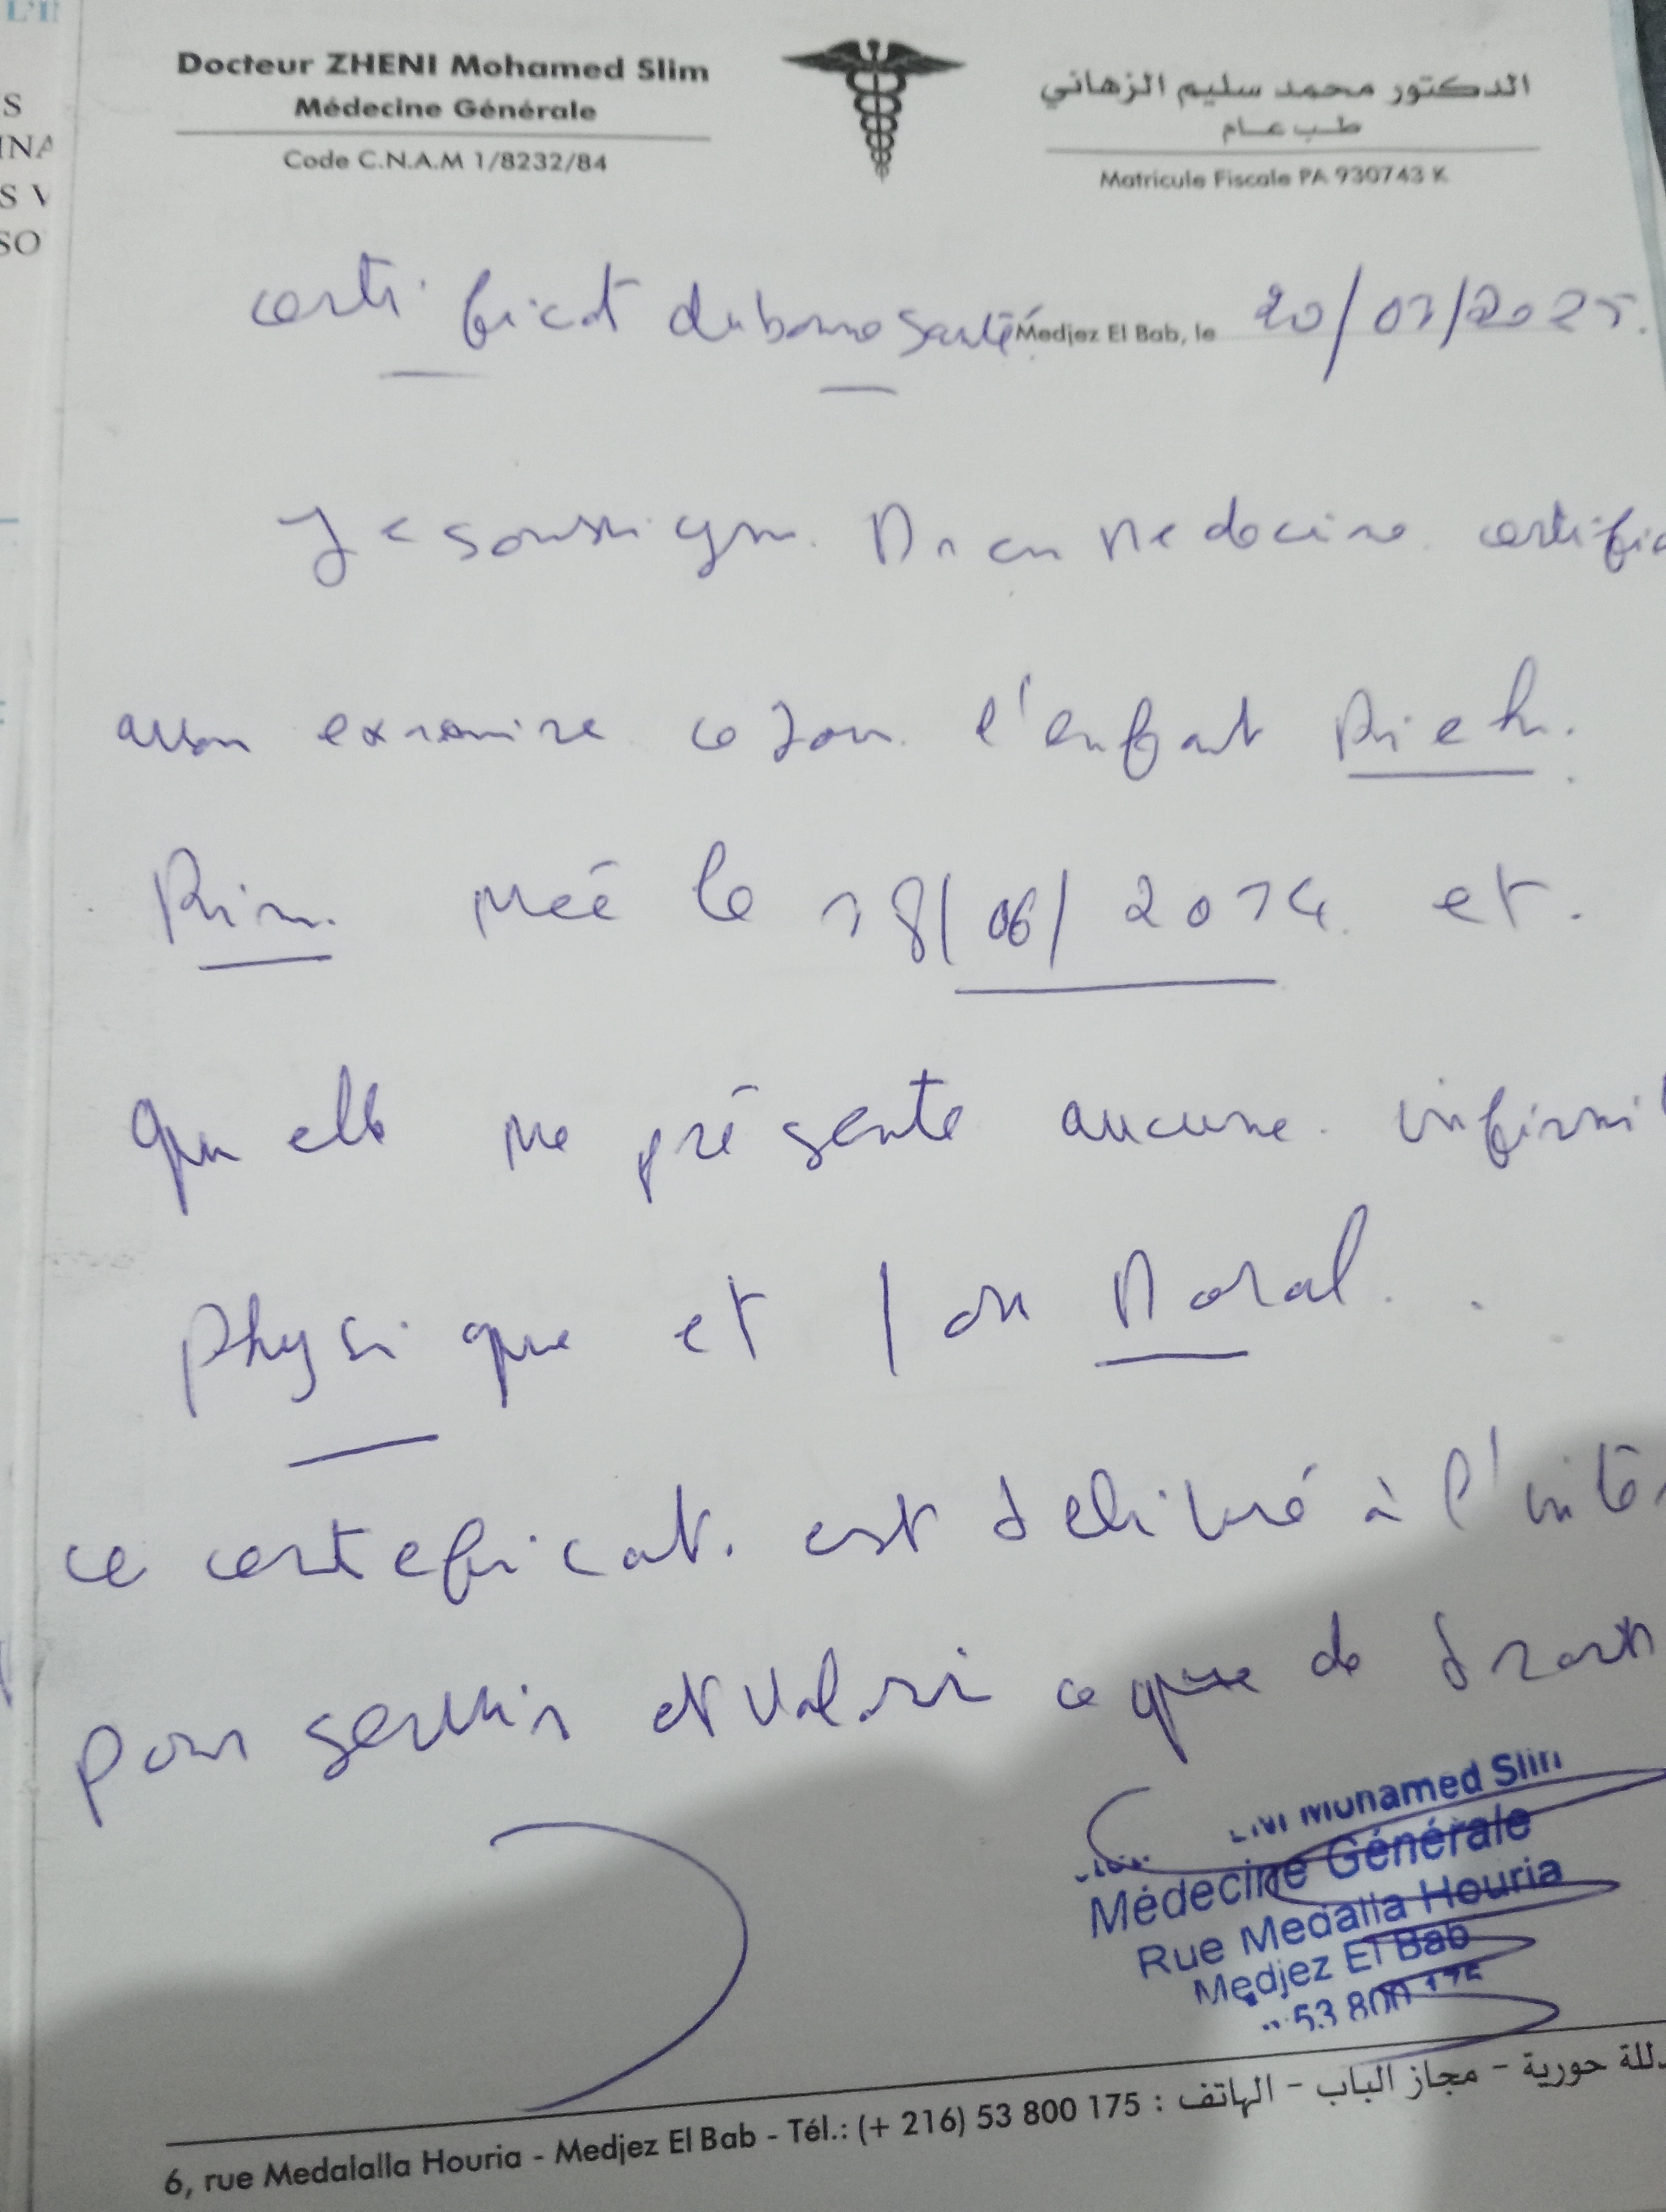 L'E
S
INA
S V
SO
Docteur ZHENI Mohamed Slim
Médecine Générale
Code C.N.A.M 1/8232/84
الدكتور محمد سليم الزهاني
طب عام
Matricule Fiscale PA 930743 K
certificat de bonne santé Medjez El Bab, le 20/07/2025.
Je soussigné Dr en Medecine certifie
avoir examiné ce jour l'enfant Rieh.
Rim née le 18/06/2014 et.
qu elle ne présente aucune infirmi
physique et / ou Moral.
ce certeficat. est délivré à l'inté
pour servir et valoir ce que de droit
Mohamed Slim
Médecine Générale
Rue Medalla Houria
Medjez El Bab
53 800 175
6, rue Medalalla Houria - Medjez El Bab - Tél.: (+ 216) 53 800 175 : للة حورية - مجاز الباب - الهاتف